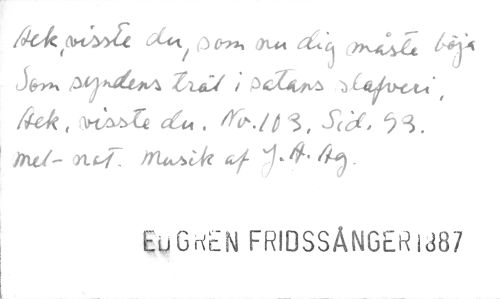 Ack, visste du, som nu dig måste böja
Som syndens träl i satans slafveri,
Ack, visste du. No. 103, Sid. 93.
mel-not. Musik af J. A. Ag.
EDGREN FRIDSSÅNGER 1887